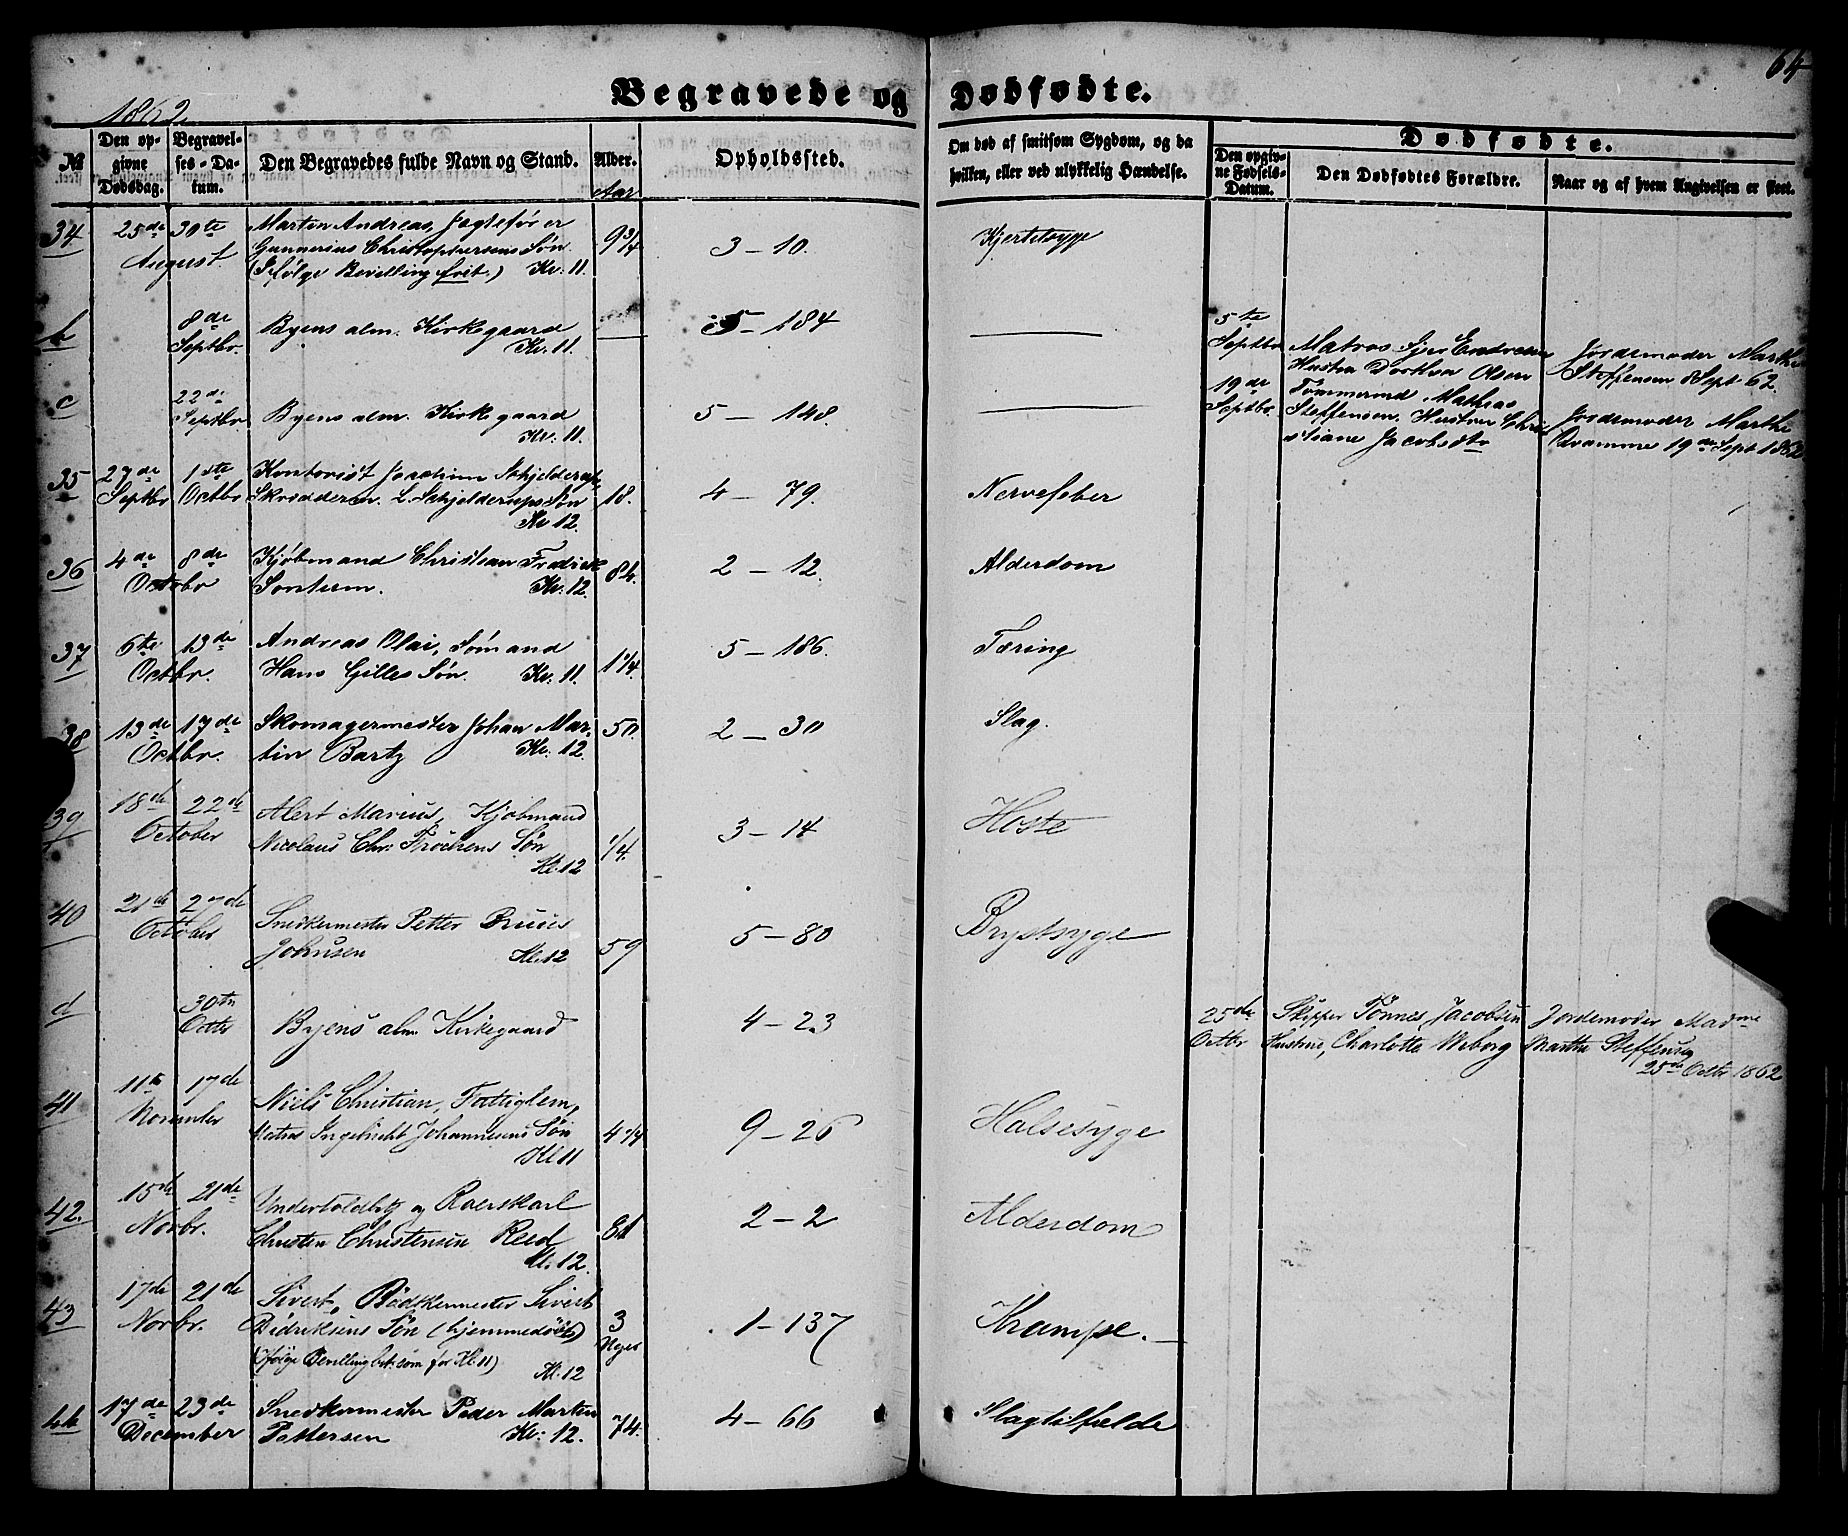 64
1862.
Begravede og Dødfødte.
№
Den opgivne Dødsdag.
Begravelses-Datum.
Den Begravedes fulde Navn og Stand.
Alder.
Aar
Opholdssted.
Om død af smitsom Sygdom, og da hvilken, eller ved ulykkelig Hændelse.
Dødfødte.
Den opgivne Fødsels-Datum.
Den Dødfødtes Forældre.
Naar og af hvem Angivelsen er skeet.
34 25de 30te Martin Andreas, Jagtefører 9 3/4 3 – 10. Kjertelsyge
August. Gunnerius Christophersens Søn.
(Ifølge Bevilling frit.) Kv. 11.
b 8de Byens alm. Kirkegaard — 5 – 184 — 5te
Septbr. Kv. 11. Septbr Matros Endresen Jordemoder Marthe
Hustru Dorthea Olsen Steffensen 8 Sept 62.
c 22de Byens alm. Kirkegaard 5 – 148. — 19de Tømmermd Mathias
Septbr Kv. 11. Septbr. Steffensen. Hustru Chri Jordemoder Marthe
stiane Jacobsdtr Qvamme 19de Sept 1862
35 27de 1ste Kontorist Joachim Schjelderup 18. 4 – 79. Nervefeber
Septbr Octbr Skrædderm. L. Schjelderups Søn
Kv 12.
36 4de 8de Kjøbmand Christian Fredrik 84. 2 – 12. Alderdom
Octobr Sontum. Kv. 12.
37 6te 13de Andreas Olai, Sømand 1 1/4. 5 – 186. Tæring
Octbr. Hans Gilles Søn. Kv. 11.
38 13de 17de Skomagermester Johan Mar- 50. 2 – 30 Slag.
Octbr. tin Bartz Kv. 12.
39 18de 22de Alert Marius, Kjøbmand 1/4. 3 – 14 Hoste
October Nicolaus Chr. Søn
Kl. 12
40 21de 27de Snedkermester Petter Bruus 59 5 – 80 Brystsyge
October Johnsen Kl. 12
d 30te Byens alm. Kirkegaard 4 – 23 25de Skipper Tønnes Jacobsen Jordemoder Madme
Octbr Octbr Hustrue, Charlotte Wiborg Marthe Steffensen
25de Octbr 1862
41 11te 17de Niels Christian, Fattiglem, 4 1/4 9 – 26 Halsesyge
November Matros Ingebricht Johannesens Søn
Kl. 11
42. 15de 21de Undertoldbtj og Roerskarl 81 2 – 2 Alderdom
Novbr. Christen Christensen Reed
Kl. 12.
43 17de 21de Sivert, Bødkermester Sivert 3 1 – 137 Krampe.
Novbr. Didriksens Søn (hjemmedøbt) Uger
(Ifølge Bevilling bet. som for Kl. 11) Kl. 12
44 17de 23de Snedkermester Peder Martin 74. 4 – 66 Slagtilfælde
December Pettersen Kv: 12.